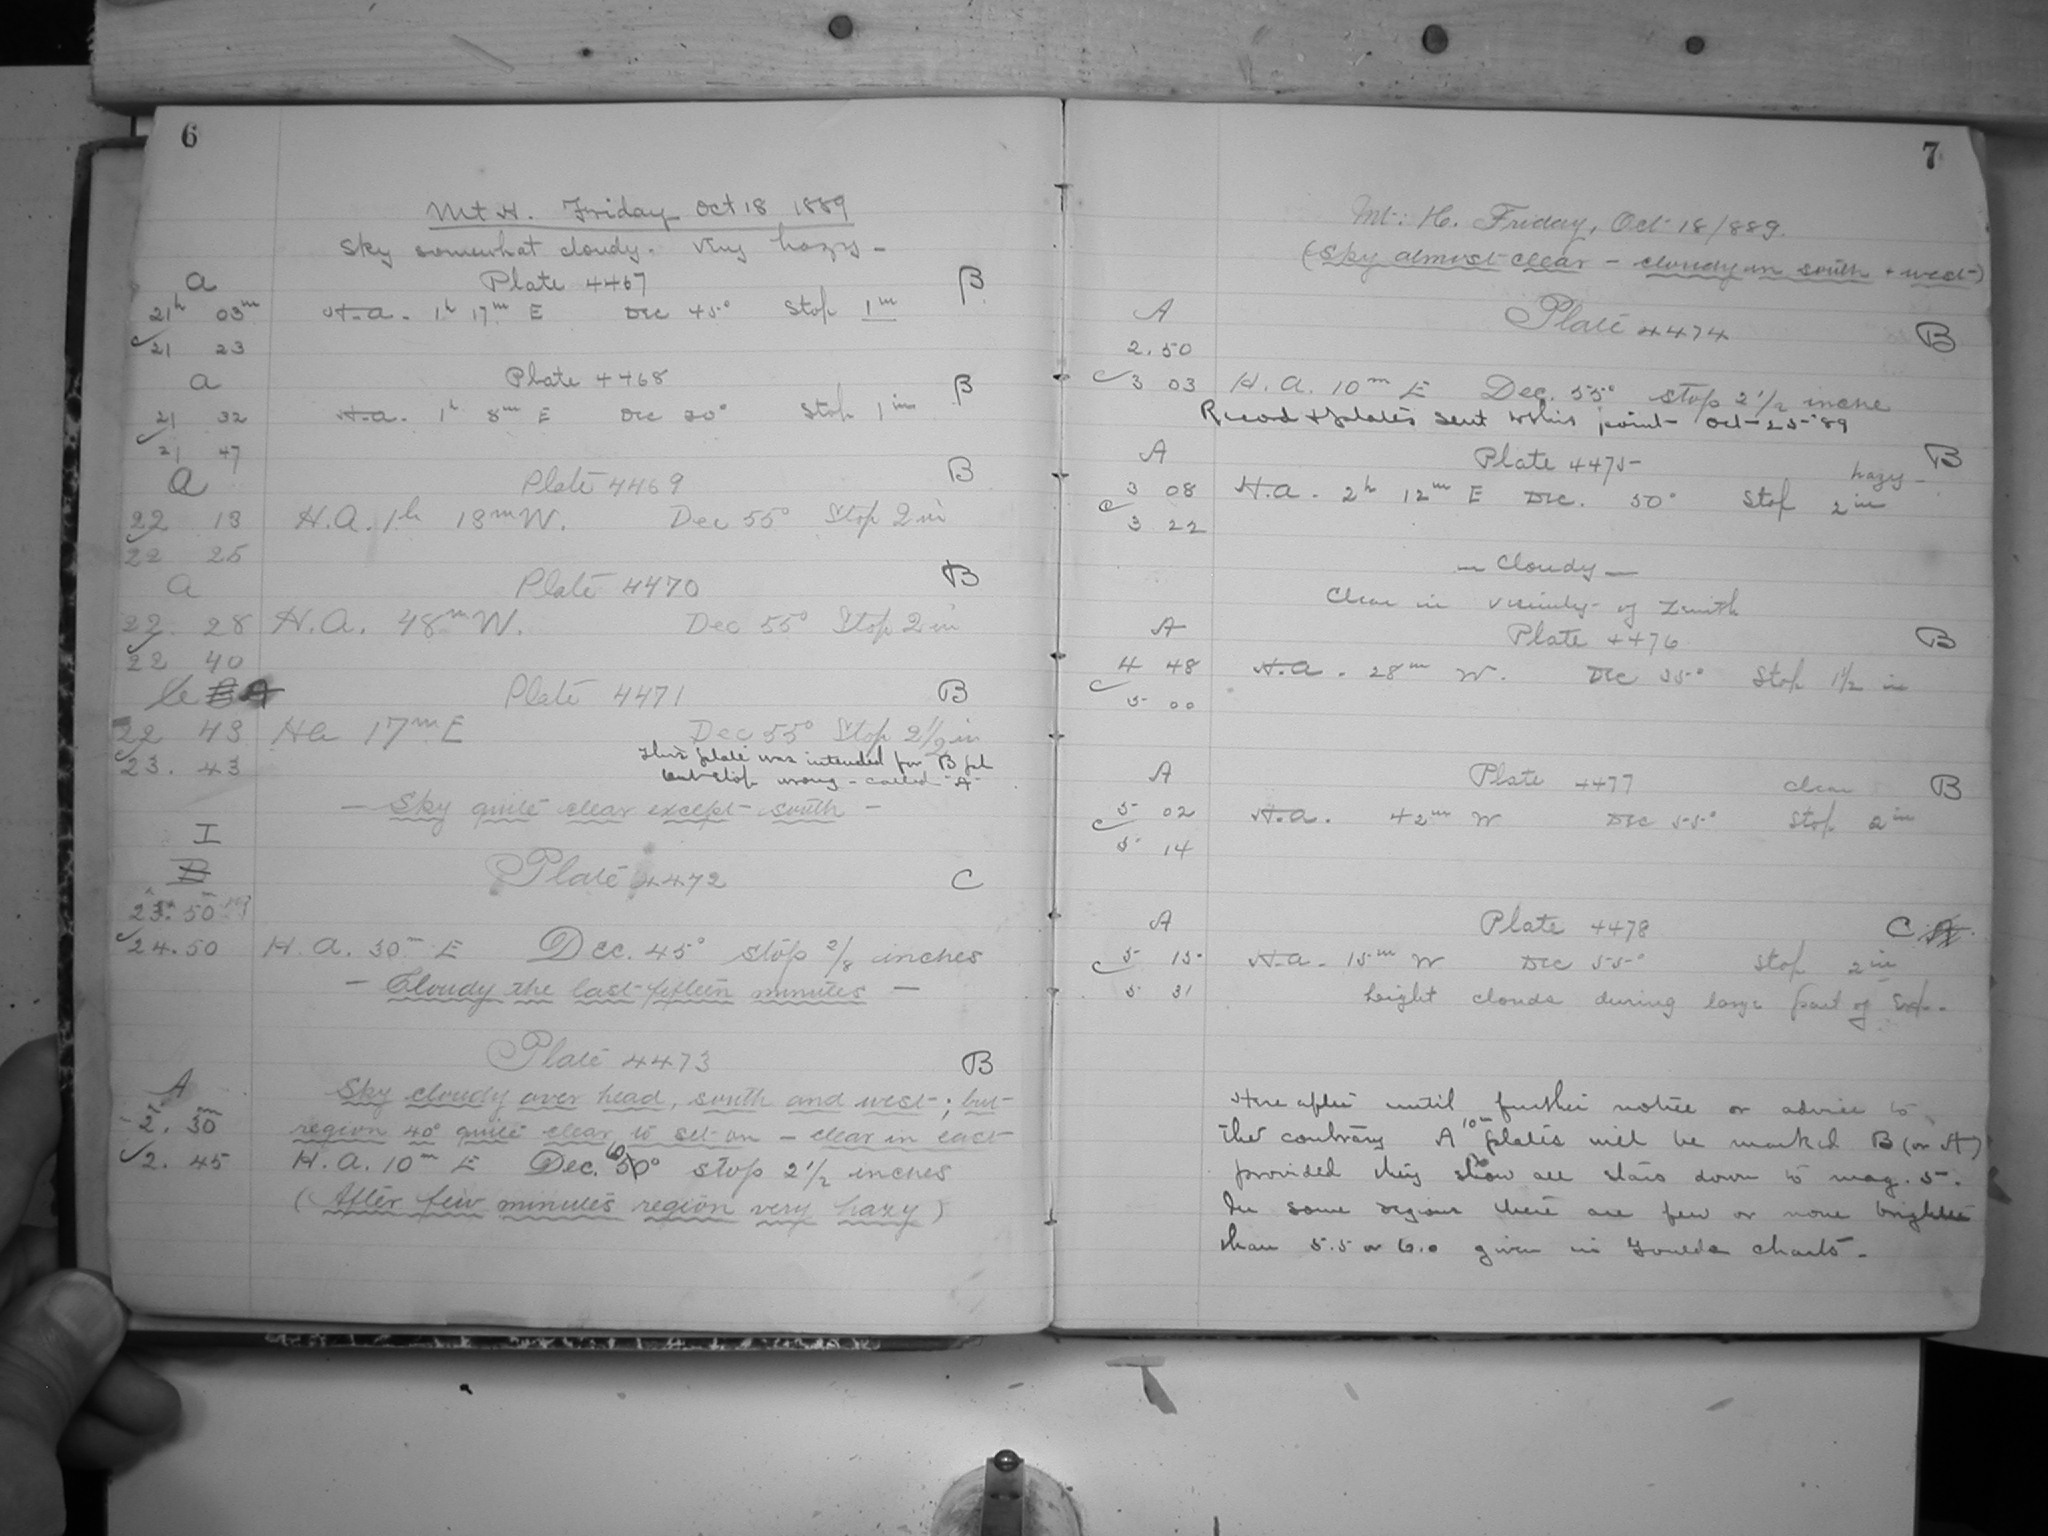 6
Mt H. Friday Oct 18 1889
Sky somewhat cloudy. Very hazy -
a Plate 4467 B
21h 03m H.a. 1h 17m E Dec 45° Stop 1in
21 23
a Plate 4468 B
21 32 H.a. 1h 8m E Dec 20° Stop 1in
21 47
a Plate 4469 B
22 13 H.A. 1h 18m W. Dec 55° Stop 2in
22 25
a Plate 4470 B
22 28 H.A. 48m W. Dec 55° Stop 2in
22 40
A Plate 4471 B
22 43 Ha 17m E Dec 55° Stop 2 1/2 in
This plate was intended for B pl
23. 43 but stop wrong - called "A"
- Sky quite clear except south -
I
B Plate 4472 C
23. 50
24.50 H.A. 30m E Dec. 45° stop 2/8 inches
- Cloudy the last fifteen minutes -
Plate 4473 B
A Sky cloudy over head, south and west; but
2. 30 region 40° quite clear to set on - clear in east
2. 45 H.A. 10m E Dec. 60° stop 2 1/2 inches
(After few minutes region very hazy)
7
Mt. H. Friday, Oct 18/889.
(Sky almost clear - cloudy in south + west)
A Plate 4474 B
2. 50
3 03 H.A. 10m E Dec. 55° stop 2 1/2 inche
Record + plates sent to this point Oct-25-'89
A Plate 4475 B
hazy -
3 08 H.a. 2h 12m E Dec. 50° Stop 2in
3 22
- Cloudy -
Clear in vicinity of Zenith
A Plate 4476 B
4 48 H.a. 28m W. Dec 35° Stop 1 1/2 in
5 00
A Plate 4477 clear B
5 02 H.a. 42m W Dec 55° Stop 2in
5 14
A Plate 4478 C A
5 15 H.a. 15m W Dec 55° Stop 2in
5 31 Light clouds during large part of Exp.
Here after until further notice or advice to
the contrary A 10m plates will be marked B (or A)
provided they show all stars down to mag. 5.
In some regions there are few or none brighter
than 5.5 or 6.0 given in Goulds charts -